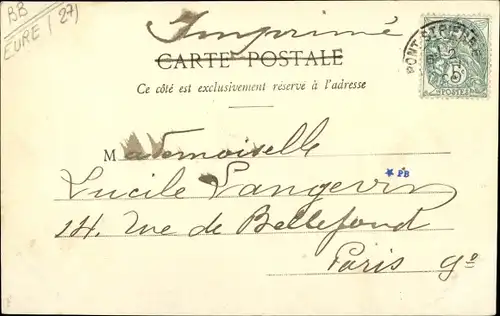 BB
EURE (27)
Imprimé
CARTE POSTALE
Ce côté est exclusivement réservé à l'adresse
PONT-ST-PIERRE
POSTES
Mademoiselle
Lucile Langevin
PB
14. Rue de Bellefond
Paris 9e